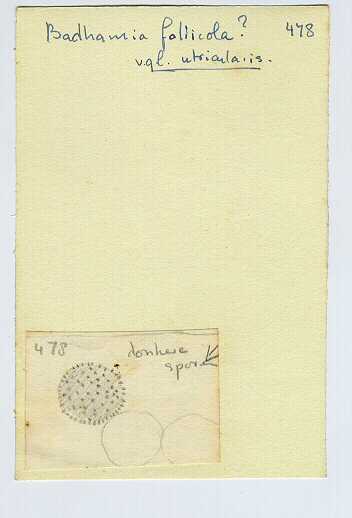 Badhamia foliicola? 478
vgl. utricularis.
478 donkere
spore